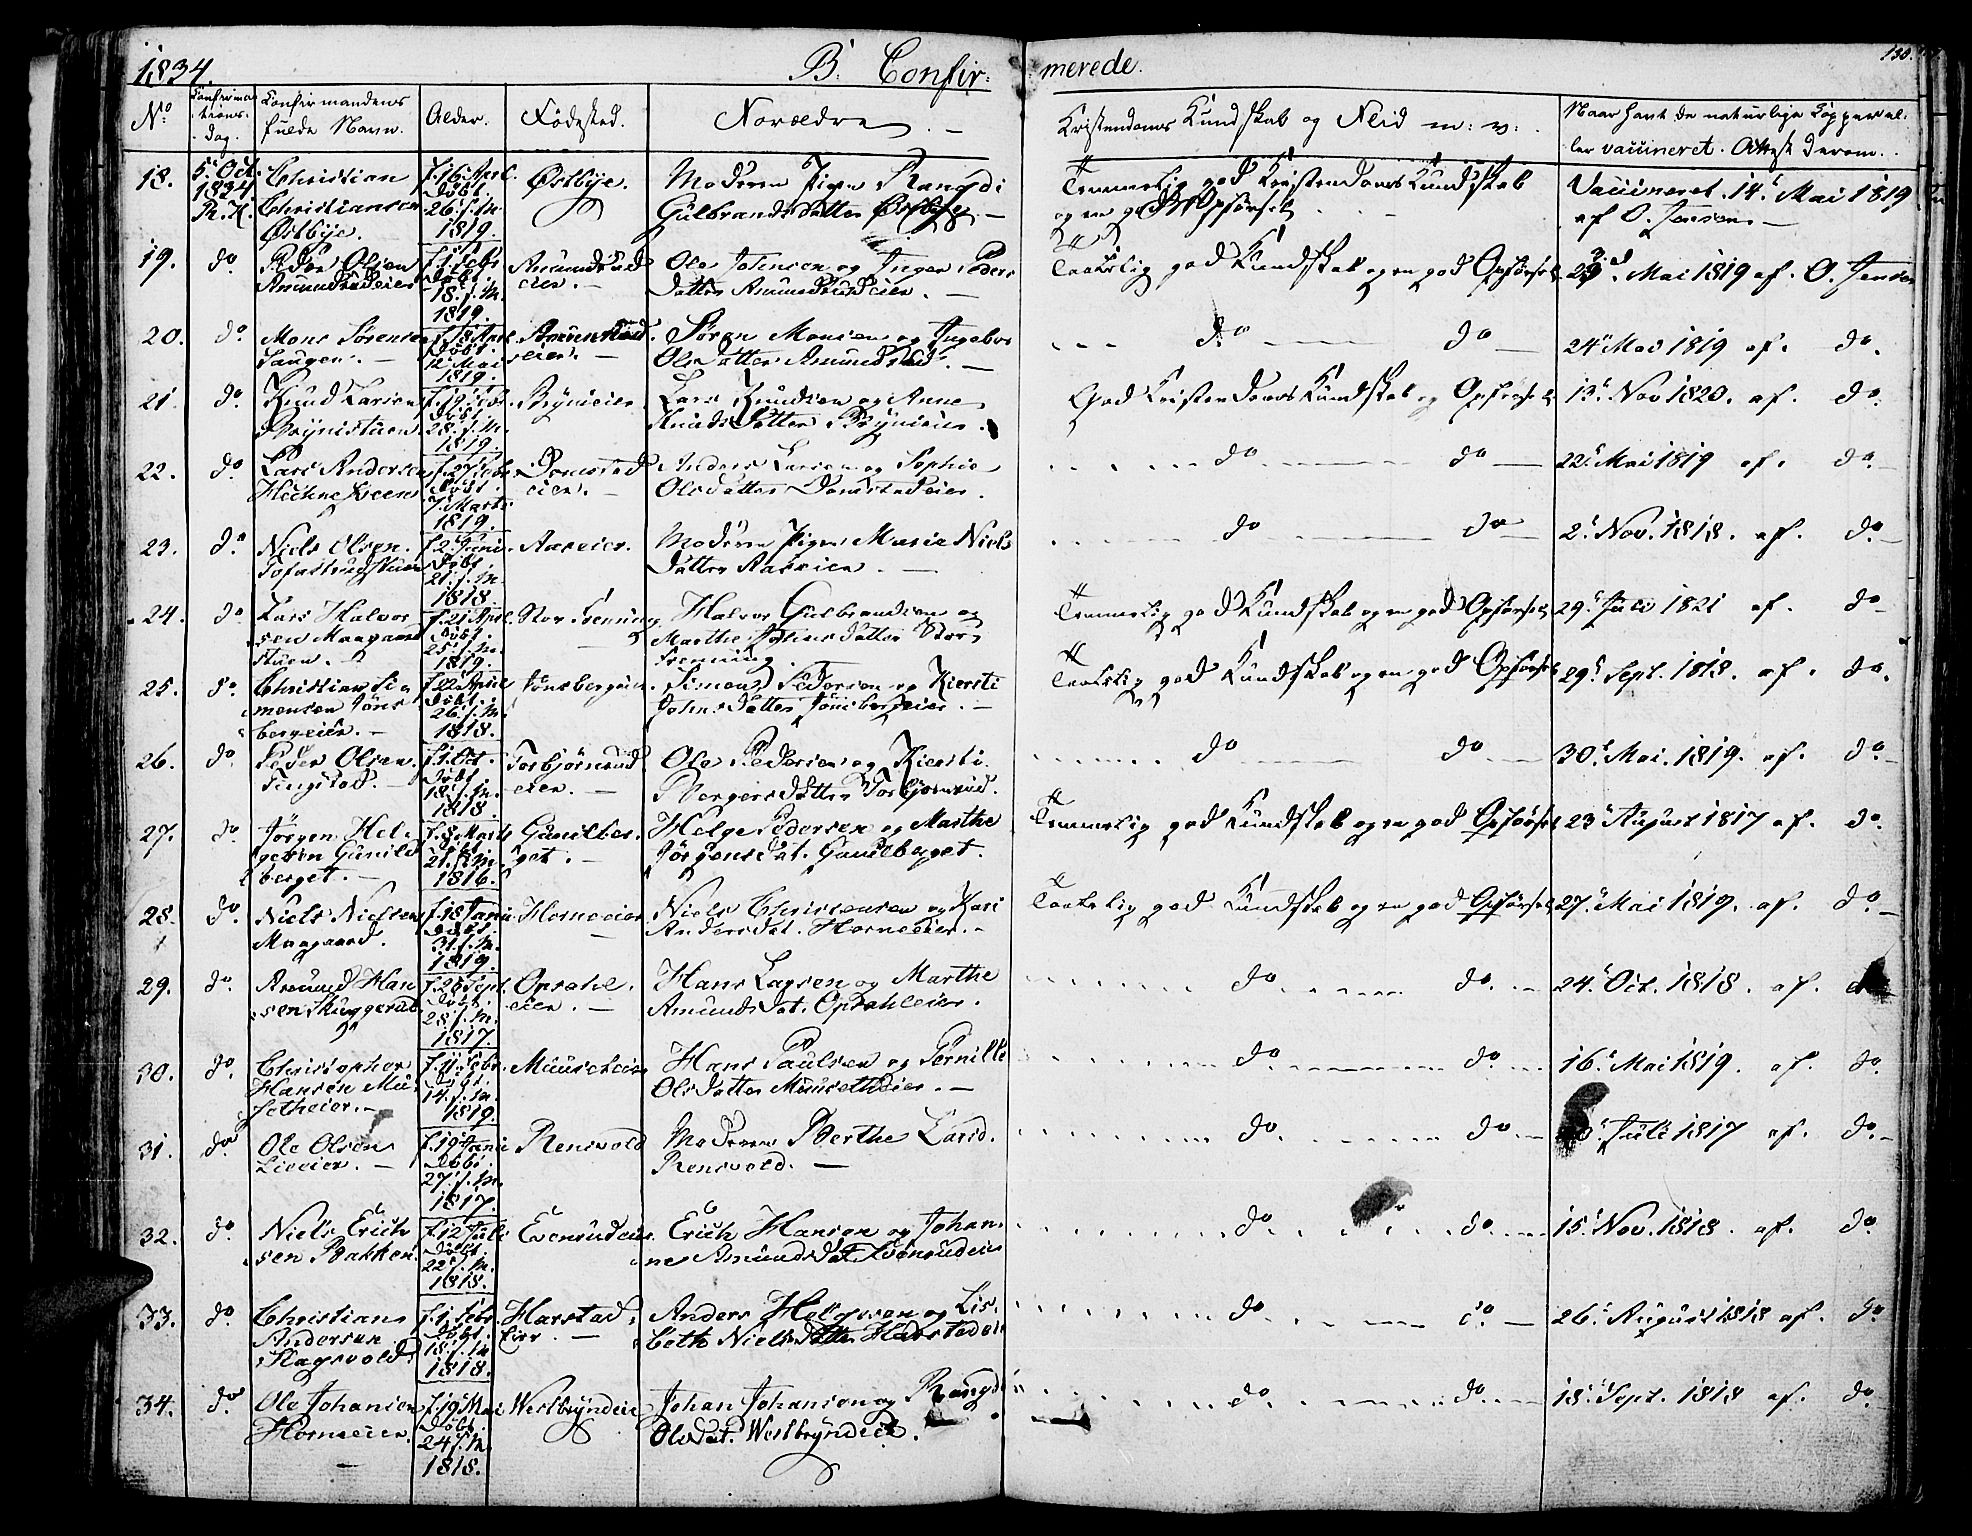 1834.
B. Confir: merede.
130.
No
Confirmations-dag.
Confirmandens fulde Navn.
Alder.
Fødested.
Forældre.
Kristendoms Kundskab og Flid m: v:
Naar havt de naturlige Kopper el-
ler vaccineret. Attest derom.
18. 5. Oct. 1834 Christian Christiansen Østbye. f. 16 April døbt. 26 s. M. 1819. Østbye. Moderen Pigen Rangdi
Gulbrandsdatter Østbye. Temmelig god Kristendoms Kundskab
og en god Opførsel Vaccineret 14. Mai 1819
af O. Jensen
19. do Peder Olsen Amundrudeier f. 1 Febr døbt. 18. s. M. 1819. Amundrud eier. Ole Johnsen og Inger Peders
datter Amundrudeier. Taalelig god Kundskab og en god Opførsel 23d Mai 1819 af O. Jensen
20. do Mons Sørensen Haugen. døbt. 12 Mai 1819. Søren Monsen og Ingebor
Olsdatter do do 24 Mai 1819 af. do.
21. do. Knud Larsen Brynistuen f. 19 Febr. døbt. 28. s. M. 1819. Brynieier Lars Knudsen og Anne
Knudsdatter Brynieier. God Kristendoms Kundskab og Opførsel 13. Nov 1820. af. do.
22. do Lars Andersen f. 27 Febr døbt. 7. Marts 1819. Domstad eier. Anders Larsen og Sophie
Olsdatter Domstadeier. do. do 22. Mai 1819 af. do.
23. do Niels Olsen. Tofastrudstuen f. 2 Juni døbt. 21. s. M. 1818. Aaseier. Moderen Pigen Marie Niels
datter Aaseier. do do 2. Nov. 1818. af. do.
24. do Lars Halvor
sen Maagaard
stuen. f. 21 April døbt. 25. s. M. 1819. Stor Frening Halvor Gulbrandsen og
Marthe datter Stor
Frenning. Temmelig god Kundskab og en god Opførsel 29. Juli 1821 af. do
25. do Christian Si
monsen Jons
bergeier. f. 22 April døbt. 26. s. M. 1818. Jonsbergeier. Simen Pedersen og Kiersti
Johnsdatter Jonsbergeier. Taalelig god Kundskab og en god Opførsel 29. Sept. 1818. af. do.
26. do Peder Olsen.
Tingstad. f. 1. Oct. døbt. 18. s. M. 1818. Torbjørnrud
eier. Ole Pedersen og Kiersti
Børgersdatter Torbjørnrud. do do 30. Mai. 1819. af. do
27. do Jørgen Hel-
gesen Gunild
berget. f. 8. Marts døbt. 21. s. M. 1816. Gunilber-
get. Helge Pedersen og Marthe
Jørgensdat. Gunilberget. Temmelig god Kundskab og en god Opførsel 23 August 1817 af. do.
28. do. Niels Nielsen
Maagaard. f. 18 Janu døbt. 31. s. M. 1819. Horneeier Niels Christensen og Kari
Andersdat. Horneeier. Taalelig god Kundskab og en god Opførsel 27. Mai 1819. af. do.
29. do. Amund Han
sen Skuggerud f. 28 Sept. døbt. 28. s. M. 1817. Opsahl
eier. Hans Larsen og Marthe
Amundsdat. Opsahleier. do. do. 24. Oct. 1818. af.
30. do. Christopher
Hansen Mu-
setheier. f. 11 Febr. døbt. 14. s. M. 1819. Muuseteier Hans Paulsen og Pernille
Olsdatter Musetheier. do do. 16. Mai 1819. af. do.
31. do. Ole Olsen
Lieeier. f. 19 Janu døbt. 27. s. M. 1817. Rensvold Moderen Berthe Larsd.
Rensvold. do do. Juli 1817 af. do.
32. do Niels Erich
sen Bakken. f. 12 Juli døbt. 22. s. M. 1818. Evenrudeier. Erich Hansen og Johan-
ne Amundsdat. Evenrudeier do. do. 15. Nov. 1818. af. do.
33. do. Christian
Andersen
f. 1. Febr. døbt. 18. s. M 1818. Harstad
Eier. Anders Helgesen og Lis-
beth Nielsdatter Harstadeier do. do. 26. August 1818 af. do
34. do. Ole Johansen
Horneeier. f. 19 Mai døbt. 24 s. M. 1818. Westbryndeie Johan Johansen og Rangdi
Olsdat. Westbryndeie. do. do. 18. Sept. 1818 af. do